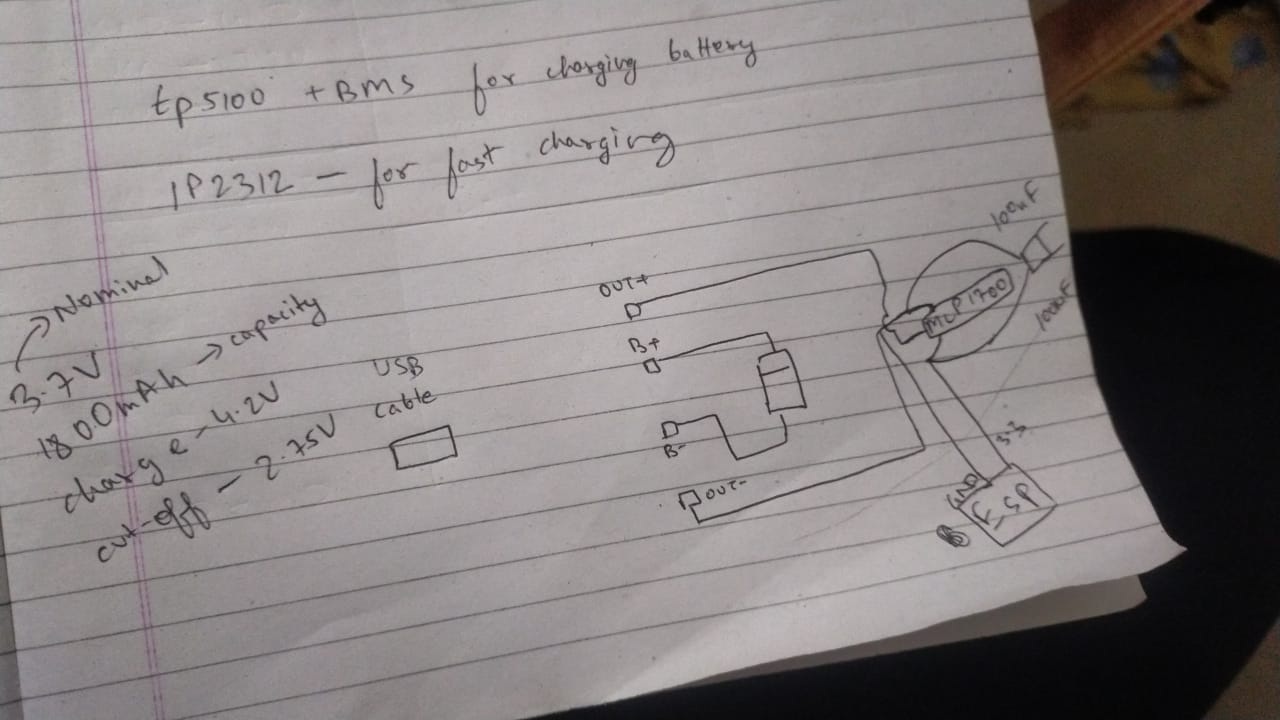 tp5100 + BMS for charging battery
IP2312 - for fast charging
→ Nominal
3.7V
1800mAh → capacity
charge - 4.2V
cut-off - 2.75V
USB
Cable
OUT+
B+
B-
OUT-
MCP1700
100nF
3.3
GND
ESP